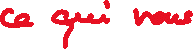 ce qui nous